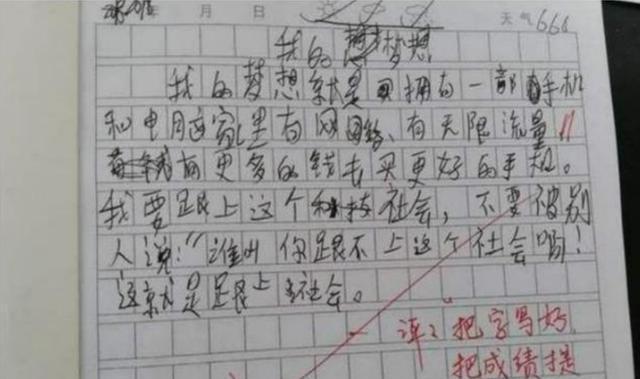 年 月 日 天气666
我的梦想
我的梦想就是拥有一部手机
和电脑这家里有网络、有无限流量
有更多的钱去买更好的手机。
我要跟上这个科技社会,不要被别
人说:“谁叫你跟不上这个社会吗!
这就是跟上社会。
评:把字写好,
把成绩提